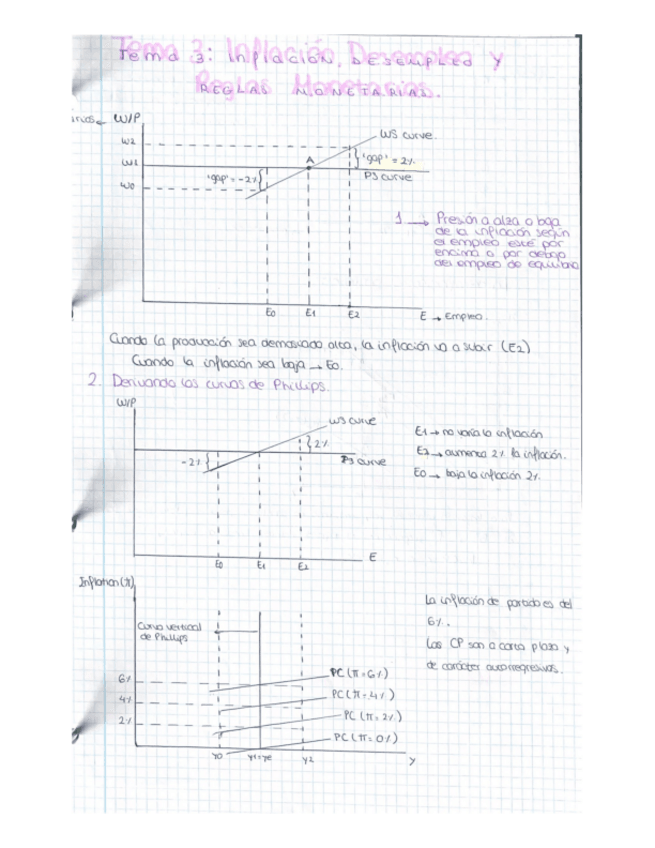 Tema 3: Inflación, Desempleo y
Reglas Monetarias.
W/P
W2
W1
W0
WS curve.
A
'gap' = 2%
PS curve
'gap' = -2%
1 → Presión a alza o baja
de la inflación según
el empleo esté por
encima o por debajo
del empleo de equilibrio
E0 E1 E2 E → Empleo.
Cuando la producción sea demasiado alta, la inflación va a subir (E2)
Cuando la inflación sea baja → E0.
2. Derivando las curvas de Phillips.
W/P
WS curve
2%
-2%
PS curve
E1 → no varía la inflación
E2 → aumenta 2% la inflación.
E0 → baja la inflación 2%.
E0 E1 E2 E
Inflation (π)
La inflación de partida es del
6%.
Las CP son a corto plazo y
de carácter autorregresivos.
Curva vertical
de Phillips
6%
4%
2%
PC (π=6%)
PC (π=4%)
PC (π=2%)
PC (π=0%)
Y0 Y1=Ye Y2 Y